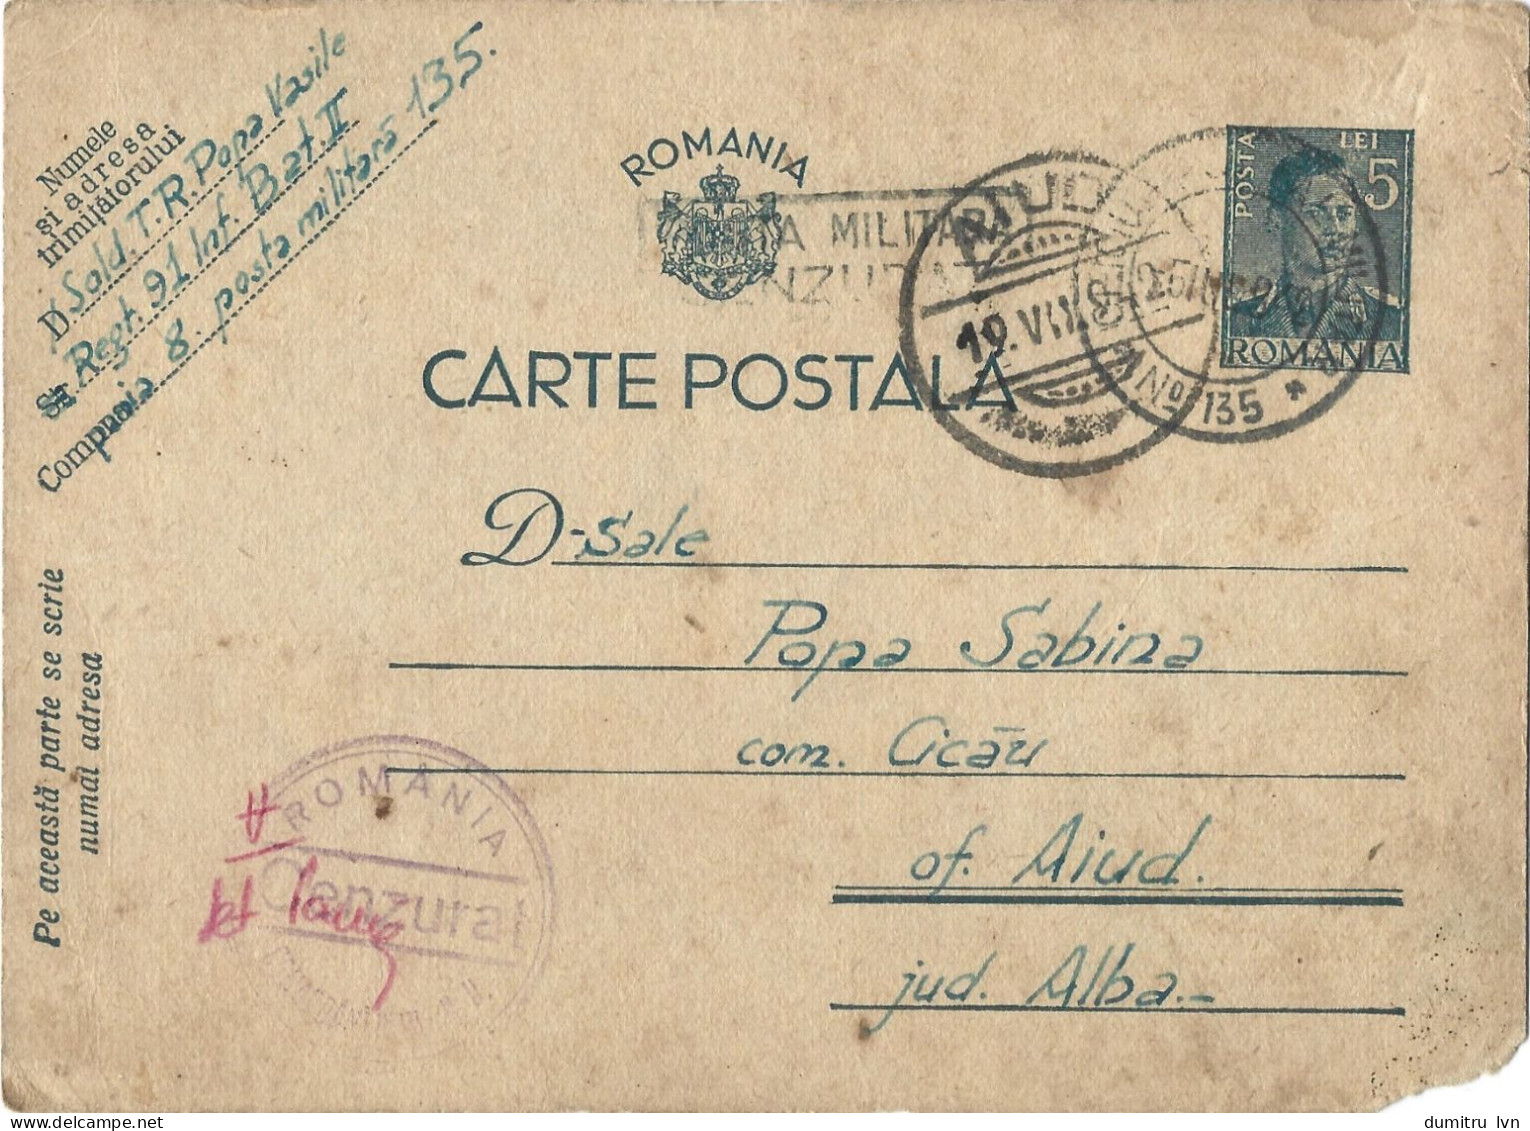 Numele
și adresa
trimițătorului
D. Sold. T.R. Popa Vasile
Str. Regt. 91 Inf. Bat. II
8. posta militară 135.
Compania
ROMANIA
MILITARA
CENZURAT
AIUD
19. VII
No 135
POSTA
LEI 5
ROMANIA
CARTE POSTALA
D-Sale
Popa Sabina
com. Cicău
of. Aiud.
jud. Alba.-
Pe această parte se scrie
numai adresa
ROMÂNIA
Cenzurat
dumitru lvn